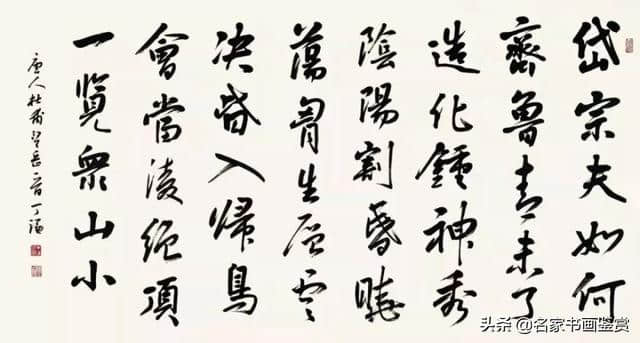 岱宗夫如何
齊魯青未了
造化鍾神秀
陰陽割昏曉
蕩胷生层雲
决眥入歸鳥
會當凌絕頂
一覽衆山小
唐人杜甫望岳 丁謙
头条 @名家书画鉴赏